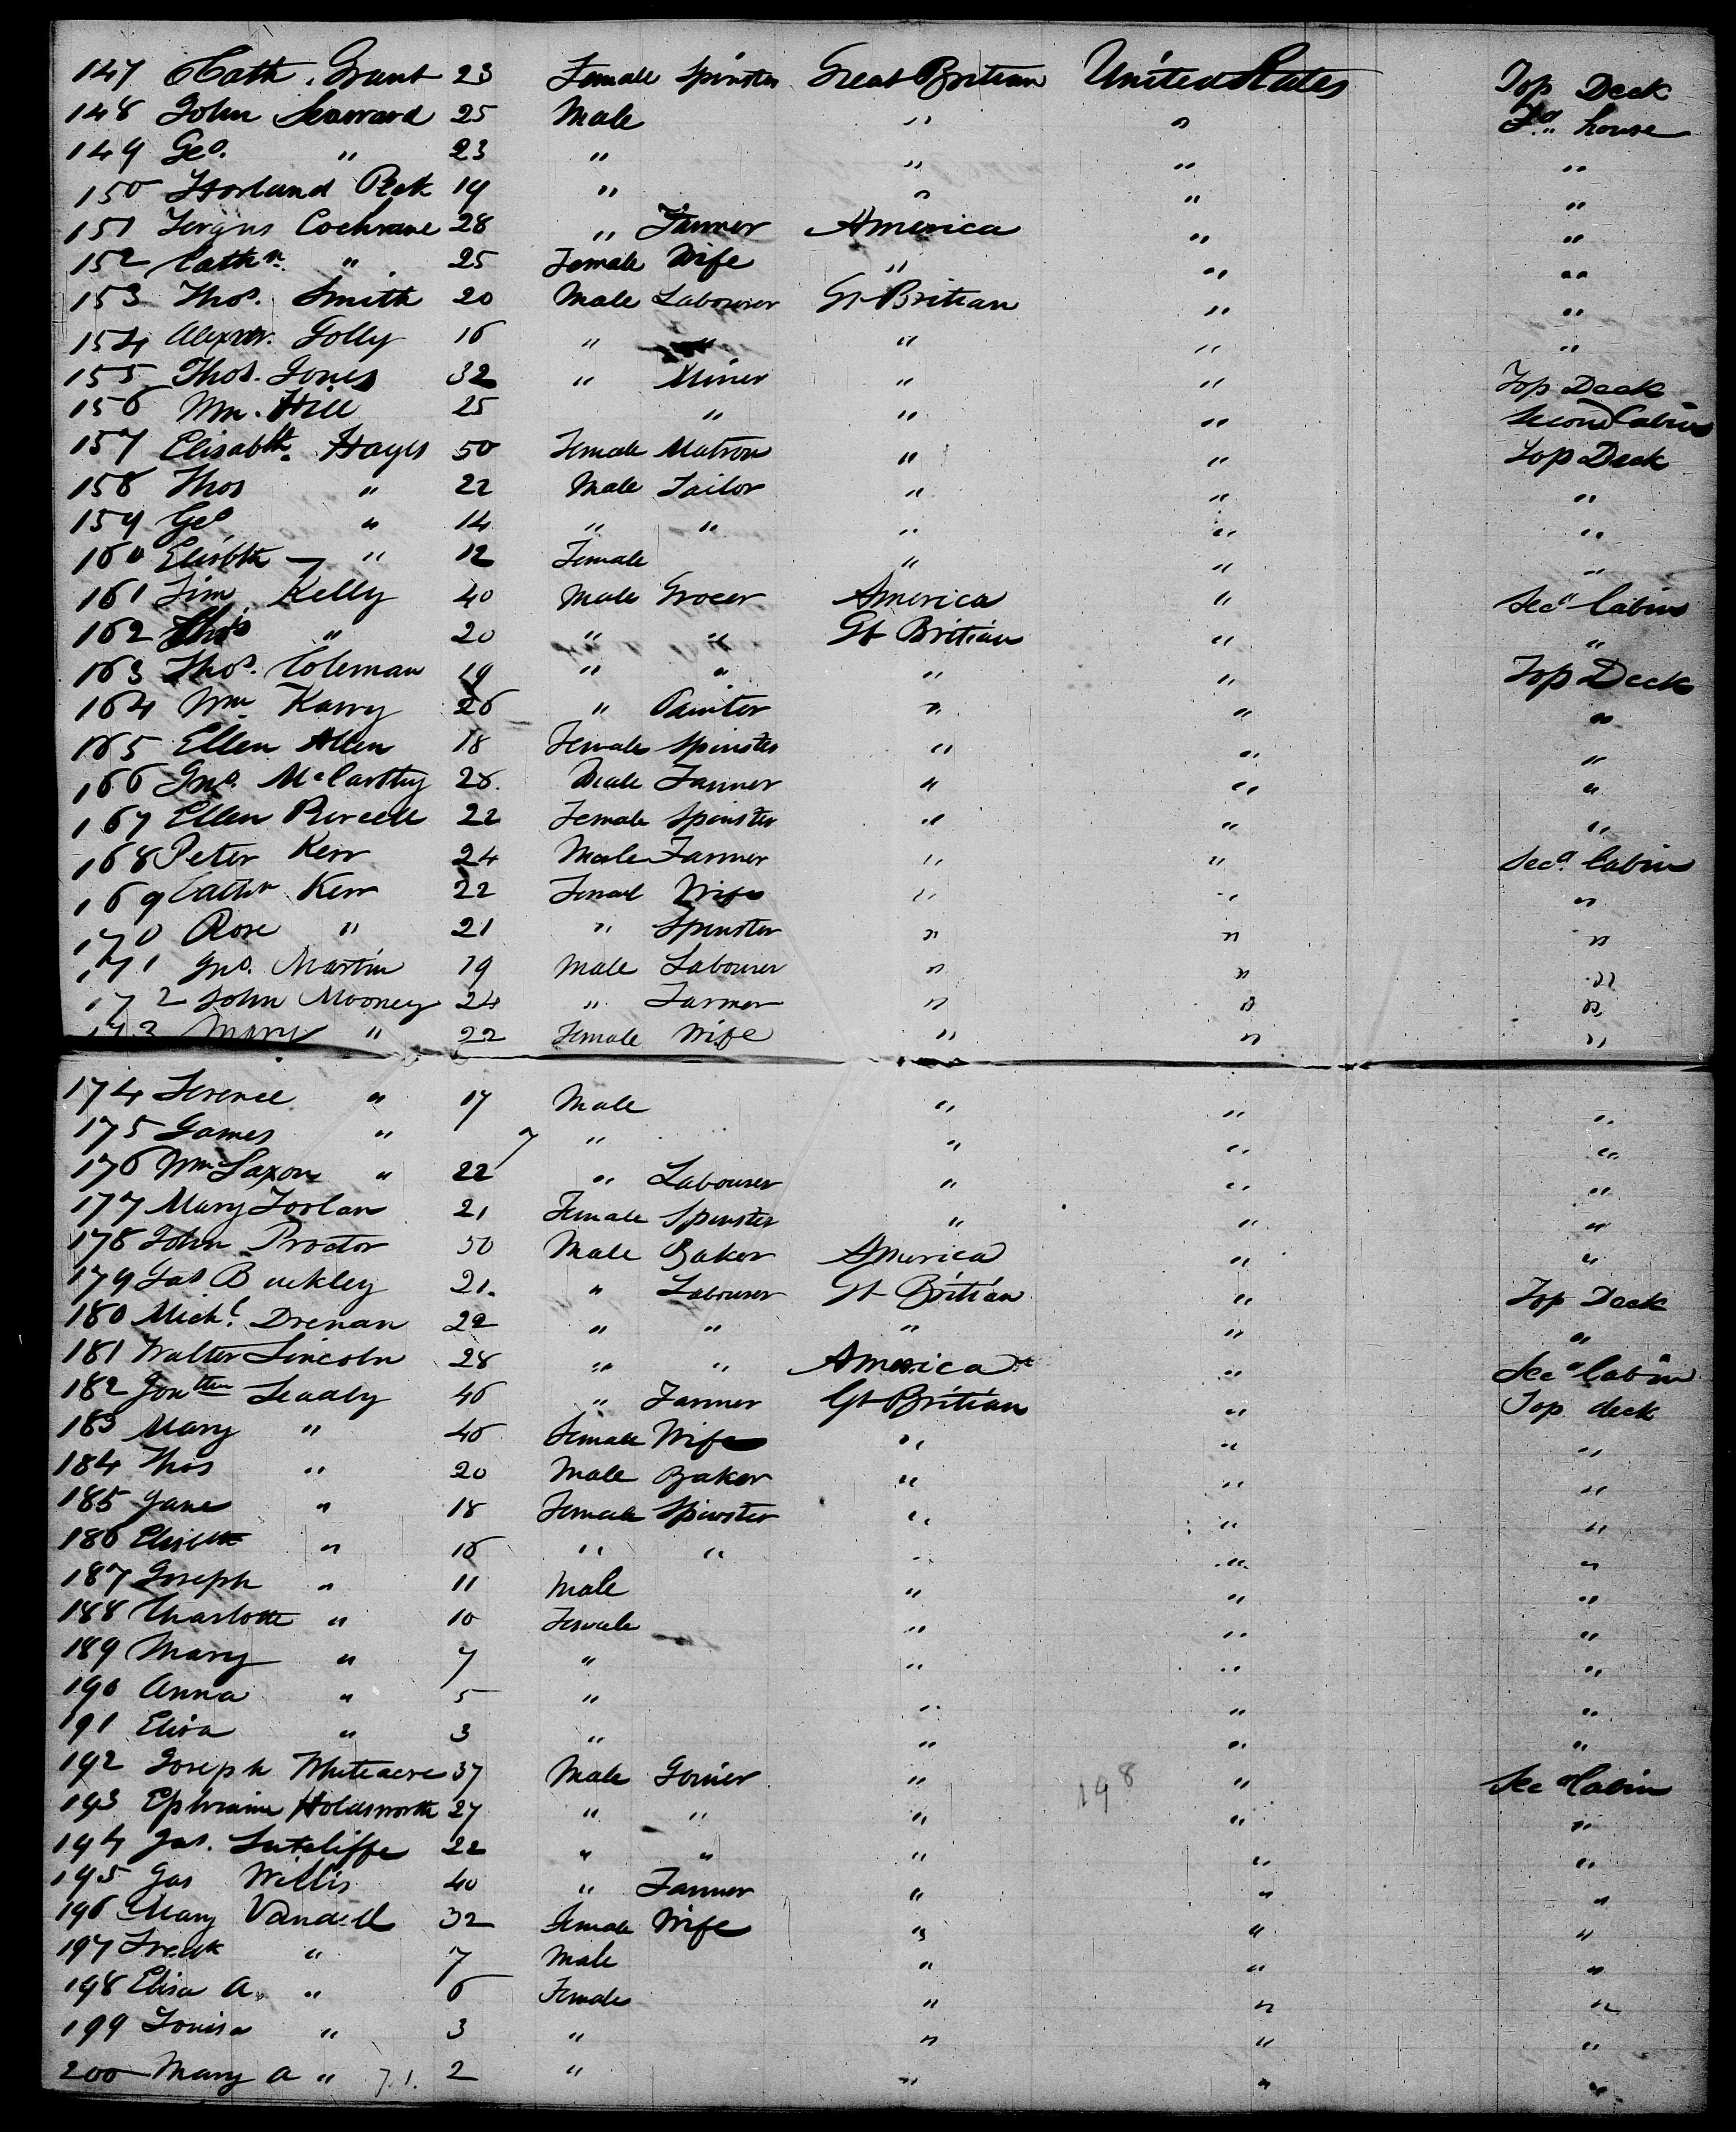 147 Cath. Grant 23 Female Spinster Great Britian United States Top Deck
148 John Seaward 25 Male " " Do. house
149 Geo. " 23 " " " "
150 Harland Peck 19 " " " "
151 Fergus Cochrane 28 " Farmer America " "
152 Cathn. " 25 Female Wife " " "
153 Thos. Smith 20 Male Labourer Gt Britian " "
154 Alexdr. Jolly 16 " " " " "
155 Thos. Jones 32 " Miner " " Top Deck
156 Wm. Hill 25 " " " Second Cabin
157 Elisabth. Hayes 50 Female Matron " " Top Deck
158 Thos " 22 Male Tailor " " "
159 Geo " 14 " " " " "
160 Elisbth — " 12 Female " " "
161 Jim Kelly 40 Male Grocer America " Secd Cabin
162 Thos " 20 " " Gt Britian " "
163 Thos. Coleman 19 " " " " Top Deck
164 Wm Karry 26 " Painter " " "
165 Ellen Allen 18 Female Spinster " " "
166 Jno. McCarthy 28. Male Farmer " " "
167 Ellen Purcell 22 Female Spinster " " "
168 Peter Kerr 24 Male Farmer " " Secd. Cabin
169 Cathn Kerr 22 Femal Wife " " "
170 Rose " 21 " Spinster " " "
171 Jno. Martin 19 Male Labourer " " "
172 John Mooney 24 " Farmer " " "
173 Mary " 22 Female Wife " " "
174 Terence " 17 Male " " "
175 James " 7 " " " "
176 Wm Saxon " 22 " Labourer " " "
177 Mary Toolan 21 Female Spinster " " "
178 John Proctor 50 Male Baker America " "
179 Jas Buckley 21. " Labourer Gt Britian " Top Deck
180 Michl. Drenan 22 " " " " "
181 Walter Lincoln 28 " " America " Secd Cabin
182 Jontthn Leadly 46 " Farmer Gt Britian " Top deck
183 Mary " 46 Female Wife " " "
184 Thos " 20 Male Baker " " "
185 Jane " 18 Female Spinster " " "
186 Elisbth " 16 " " " " "
187 Joseph " 11 Male " " "
188 Charlotte " 10 Female " " "
189 Mary " 7 " " " "
190 Anna " 5 " " " "
191 Eliza " 3 " " " "
192 Joseph Whiteacre 37 Male Joiner " 198 " Secd Cabin
193 Ephraim Holdsworth 27 " " " " "
194 Jas. Sutcliffe 22 " " " " "
195 Jas Willis 40 " Farmer " " "
196 Mary Vandell 32 Female Wife " " "
197 Fredk " 7 Male " " "
198 Elisa A. " 6 Female " " "
199 Louisa " 3 " " " "
200 Mary A " 2 " " " "